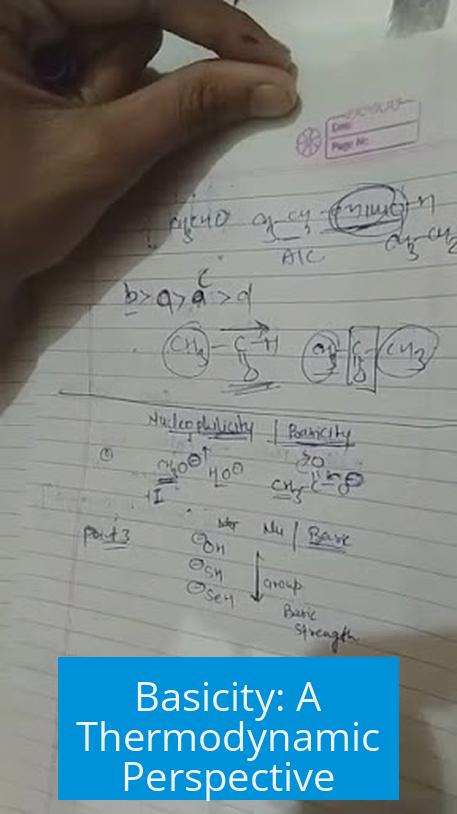 Date:
Page No:
CH3CHO
A/C
b > a > c > d
CH3 - C - H
O
C - CH3
O
Nucleophilicity | Basicity
① CH3O⊖ HO⊖
+I
CH3 - C - O⊖
O
Point 3
Nu | Basic
⊖OH
⊖SH
⊖SeH
group
Basic
Strength
Basicity: A
Thermodynamic
Perspective